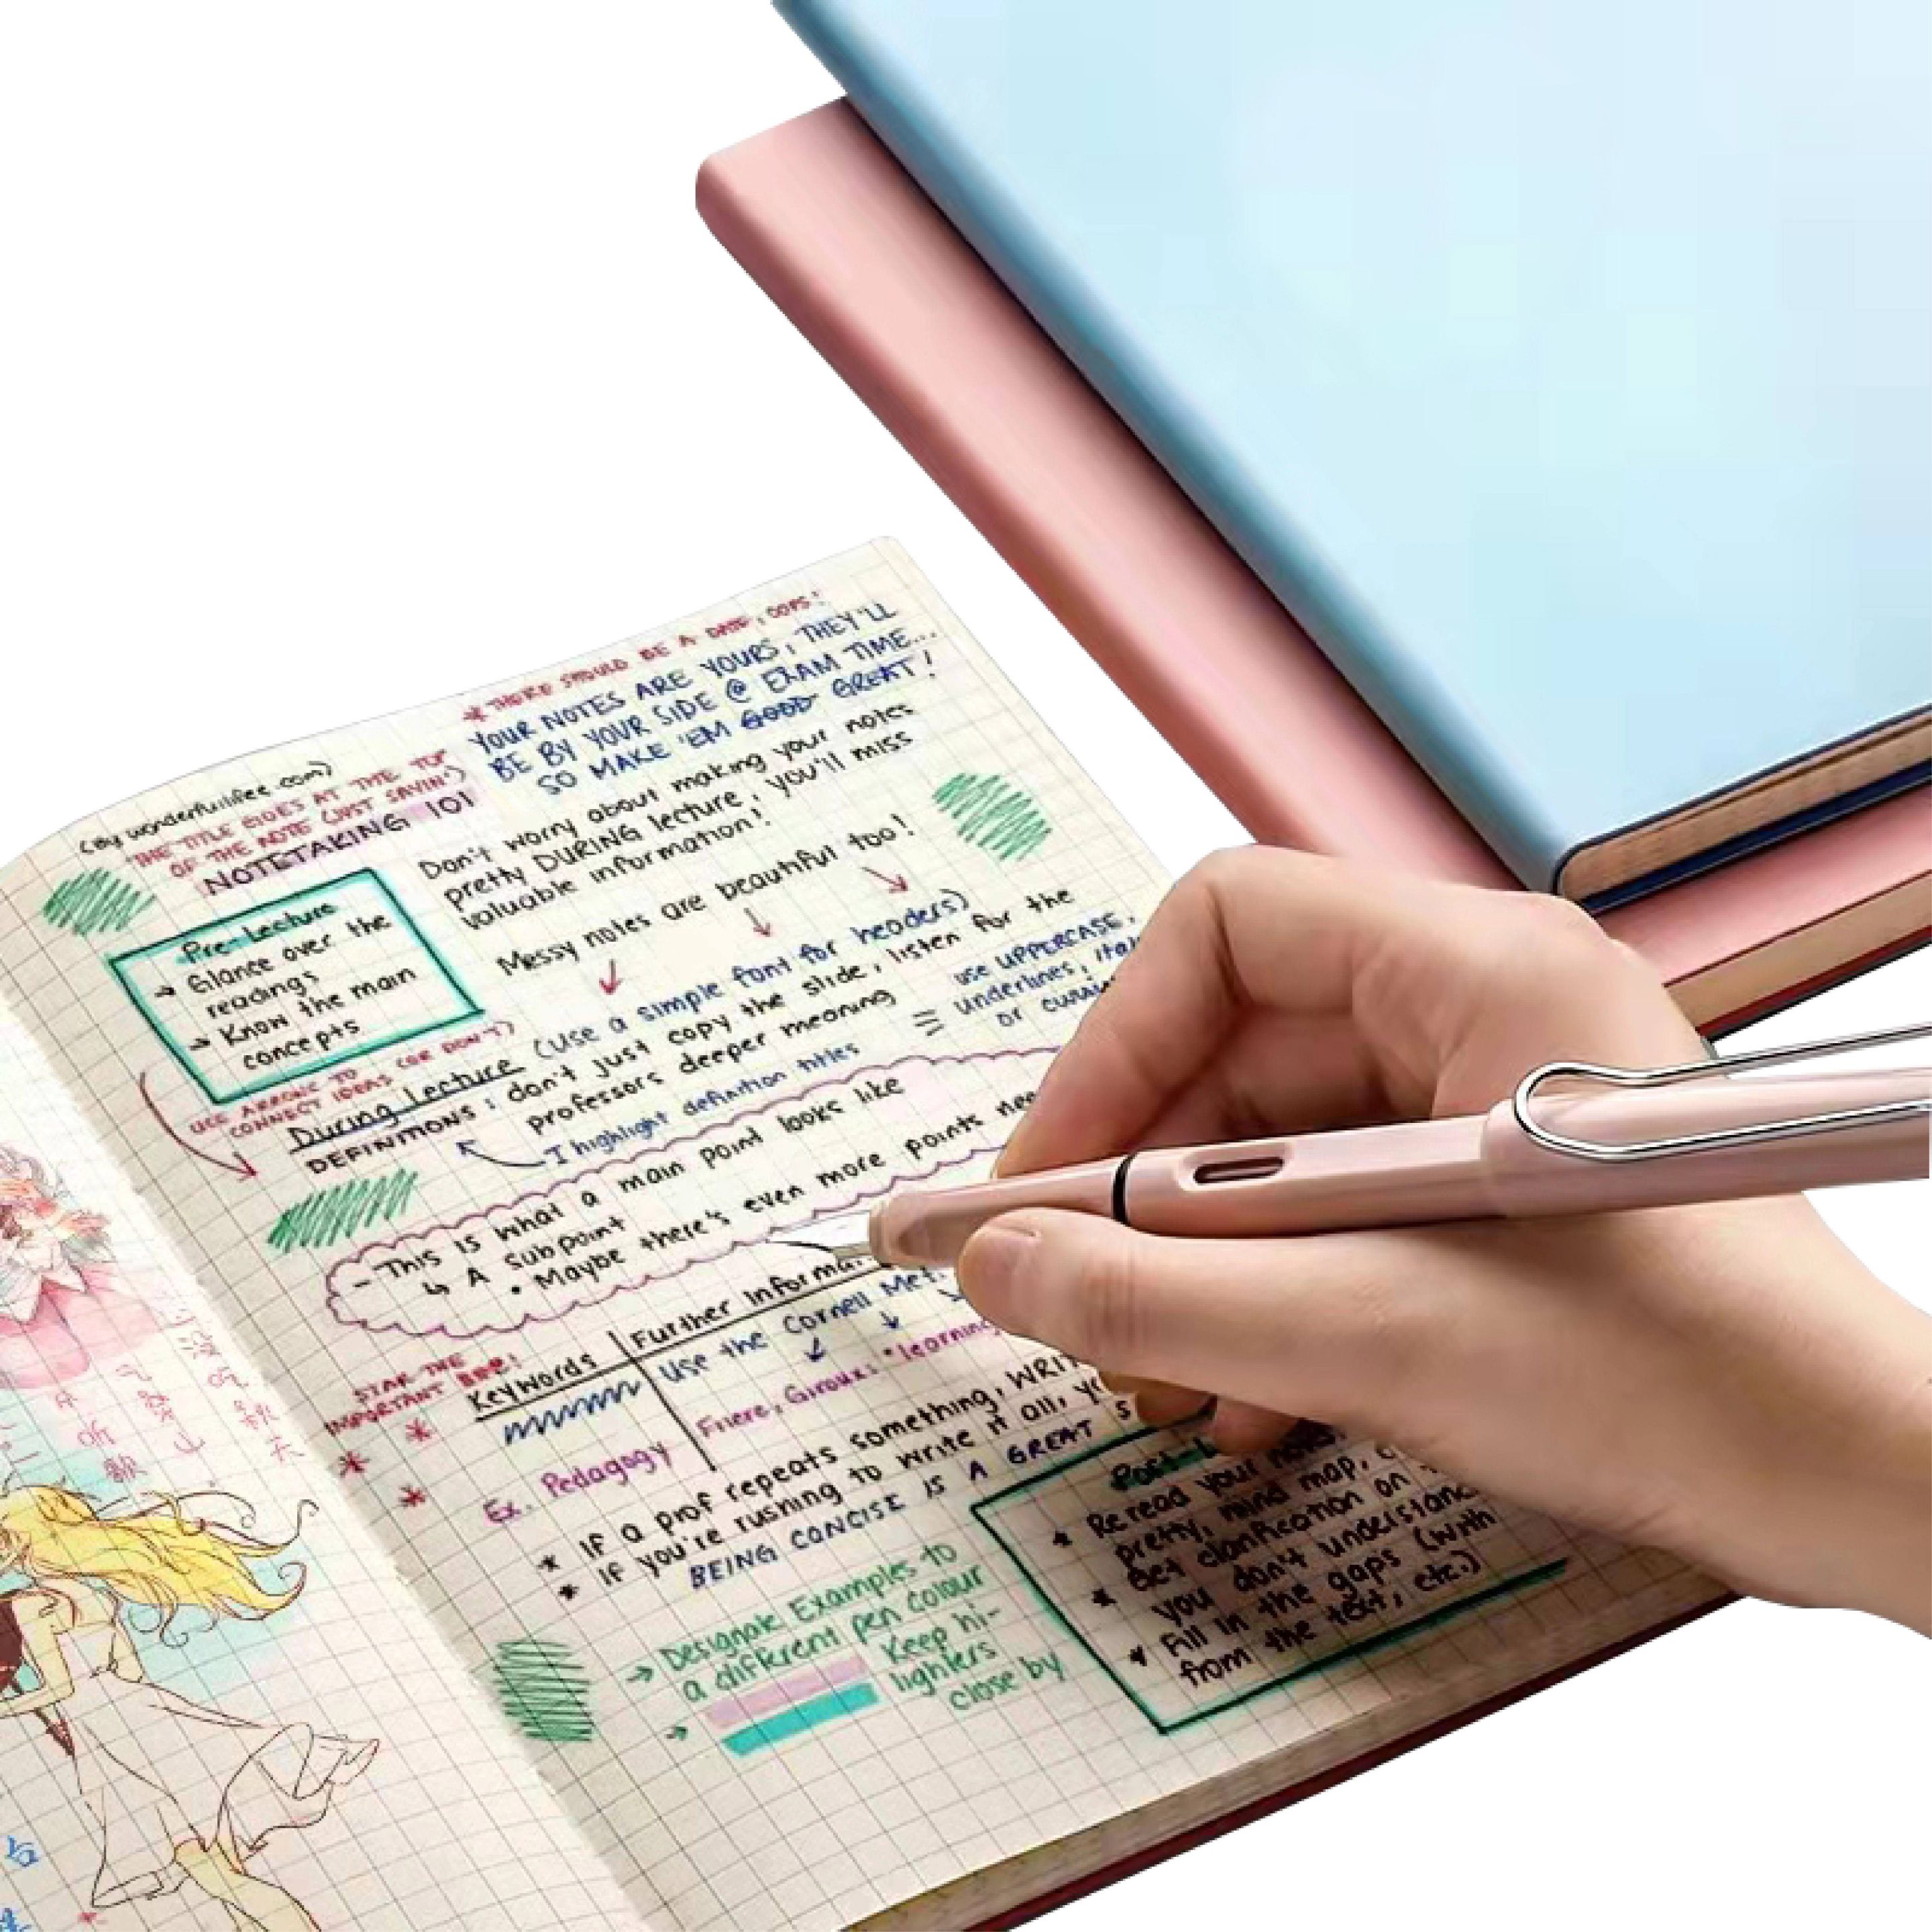 * THERE SHOULD BE A DATE, OOPS!
YOUR NOTES ARE YOURS, THEY'LL
BE BY YOUR SIDE @ EXAM TIME...
SO MAKE 'EM GOOD GREAT!
(By wonderfulifee.com)
THE TITLE GOES AT THE TOP
OF THE NOTE (JUST SAYIN')
NOTETAKING 101
Don't worry about making your notes
pretty DURING lecture, you'll miss
valuable information!
Messy notes are beautiful too!
Pre-Lecture
→ Glance over the
readings
→ Know the main
concepts
USE ARROWS TO
CONNECT IDEAS (OR DON'T)
During Lecture (Use a simple font for headers)
DEFINITIONS: don't just copy the slide, listen for the
professors deeper meaning
= use UPPERCASE,
underlines,
or
I highlight definition titles
- This is what a main point looks like
↳ A subpoint
• Maybe there's even more points
STAR THE
IMPORTANT
Keywords
Further
Use the Cornell
Ex. Pedagogy
Friere, Giroux: "learning
* If a prof repeats something,
* If you're rushing to write it all,
BEING CONCISE IS A GREAT
→ Designate Examples to
a different pen colour
→ Keep hi-
lighters
close by
* Reread your
pretty, mind map,
* Get clarification on
you don't
* Fill in the gaps (with
from the text, etc.)
听
歌
天